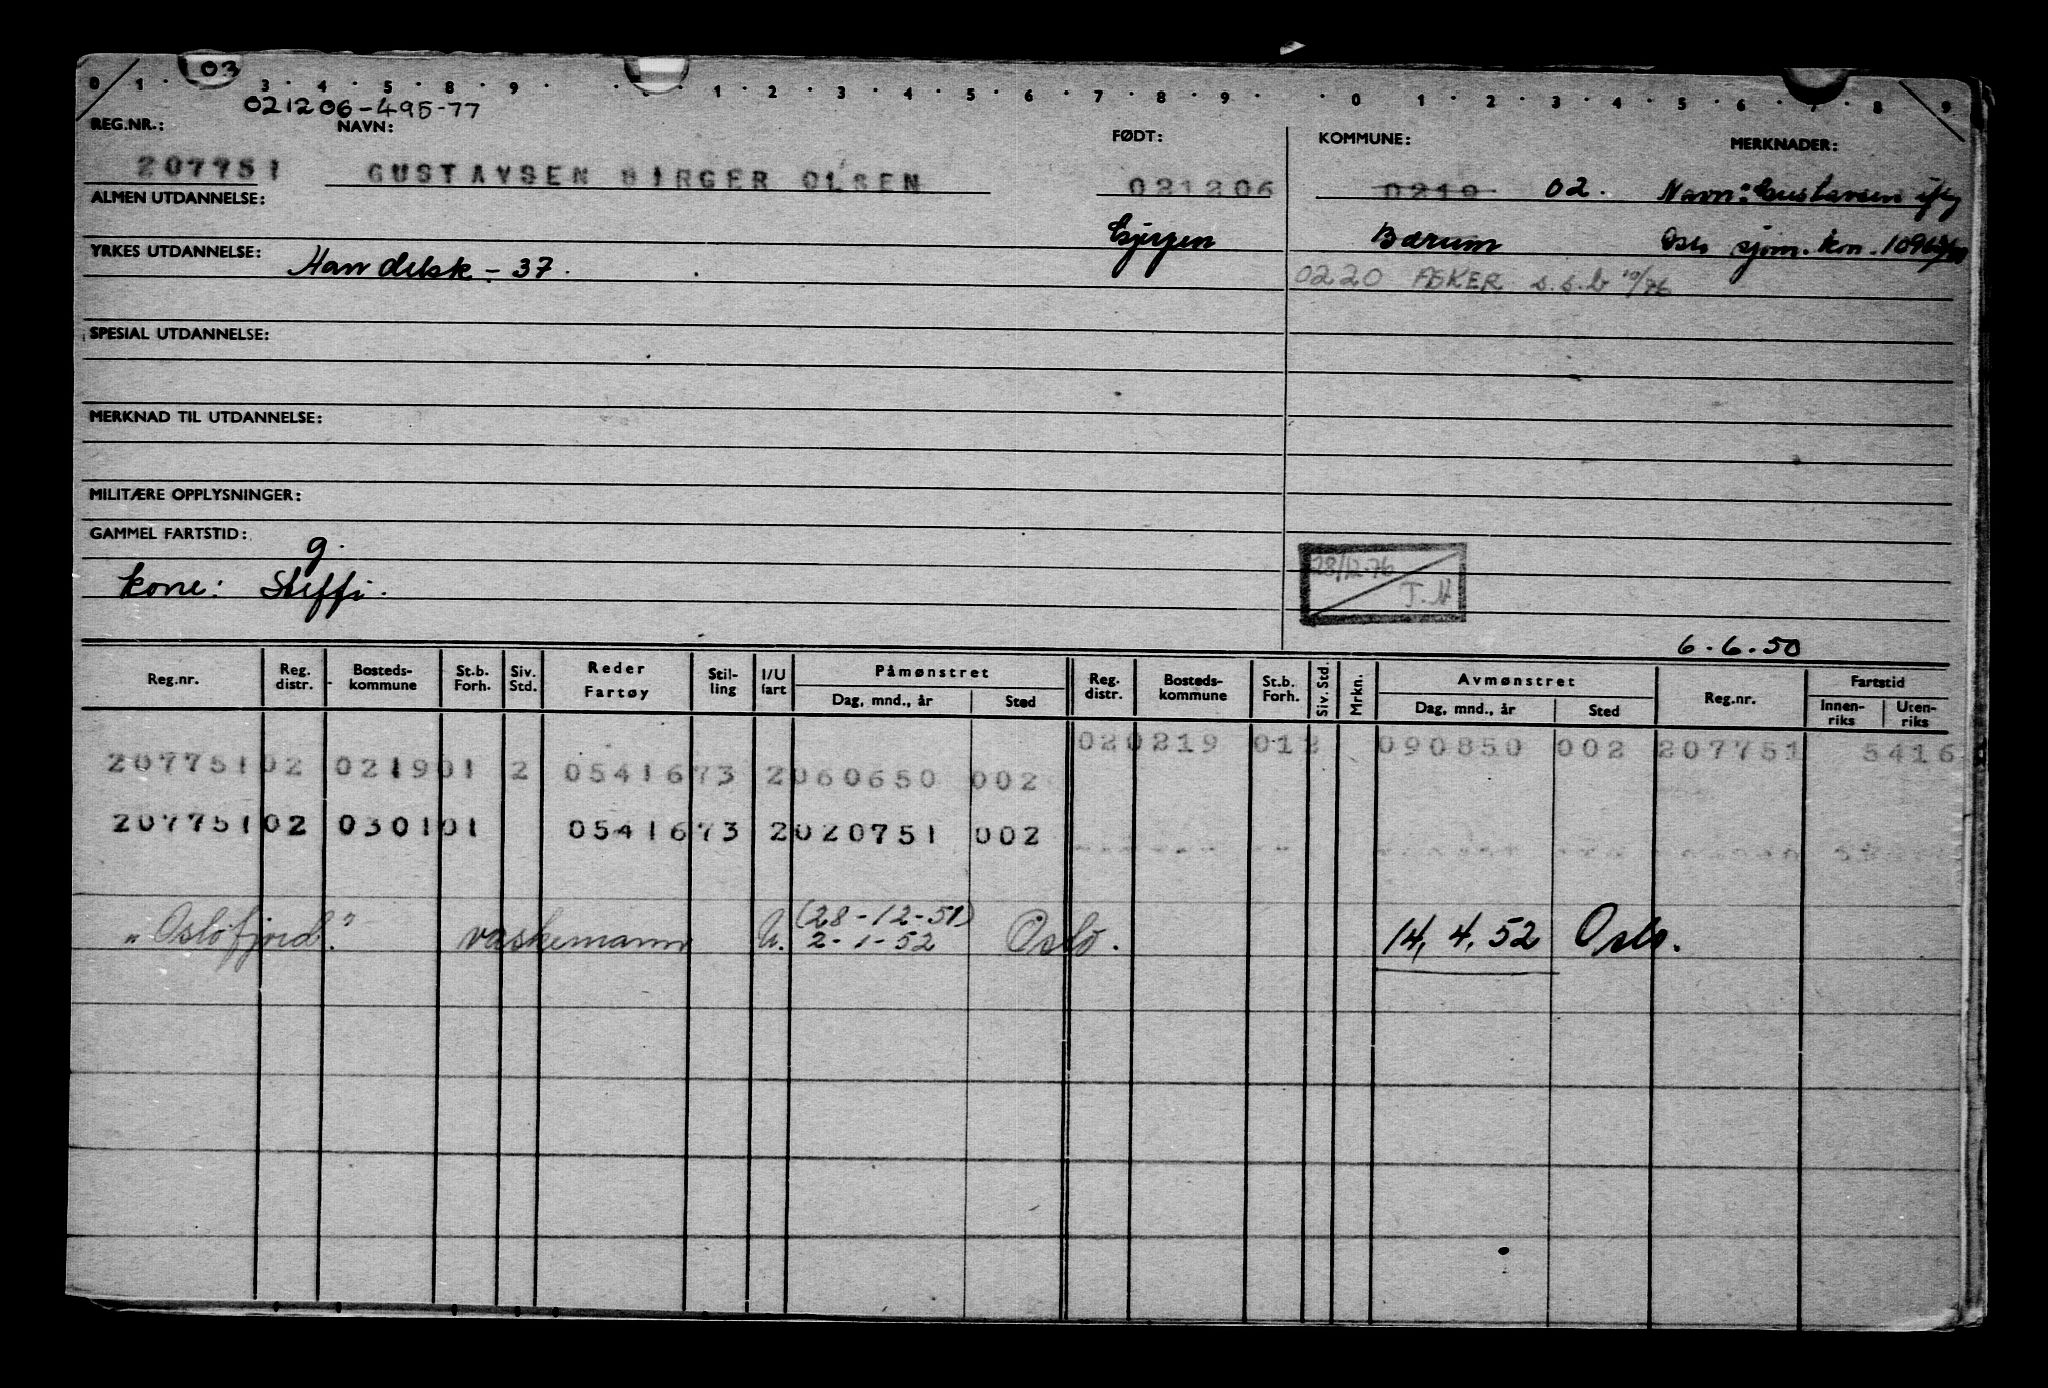 03
0 1 3 4 5 8 9 1 2 3 4 5 6 7 8 9 0 1 2 3 4 5 6 7 8 9
021206-495-77
REG.NR.: NAVN: FØDT: KOMMUNE: MERKNADER:
207751 GUSTAVSEN BIRGER OLSEN 021206 0219 02. Navn: Gustavsen iflg
ALMEN UTDANNELSE:
Esjergen Bærum Oslo sjøm. kn.
YRKES UTDANNELSE: Handelsk - 37.
0220 ASKER s.s.b 10/76
SPESIAL UTDANNELSE:
MERKNAD TIL UTDANNELSE:
MILITÆRE OPPLYSNINGER:
GAMMEL FARTSTID: g.
28/12-76
kone: Steffi.
T.H
6.6.50
Reg.nr. Reg. distr. Bosteds- kommune St.b. Forh. Siv. Std. Reder Fartøy Stil- ling I/U fart Påmønstret Dag, mnd., år Sted Reg. distr. Bosteds- kommune St.b. Forh. Siv. Std. Mrkn. Avmønstret Dag, mnd., år Sted Reg.nr. Fartstid Innen- riks Uten- riks
020219 012 090850 002 207751 5416
20775102 021901 2 0541673 2060650 002
20775102 030101 0541673 2020751 002
"Oslofjord." vaskemann U. (28-12-51) 2-1-52 Oslo. 14,4,52 Oslo.